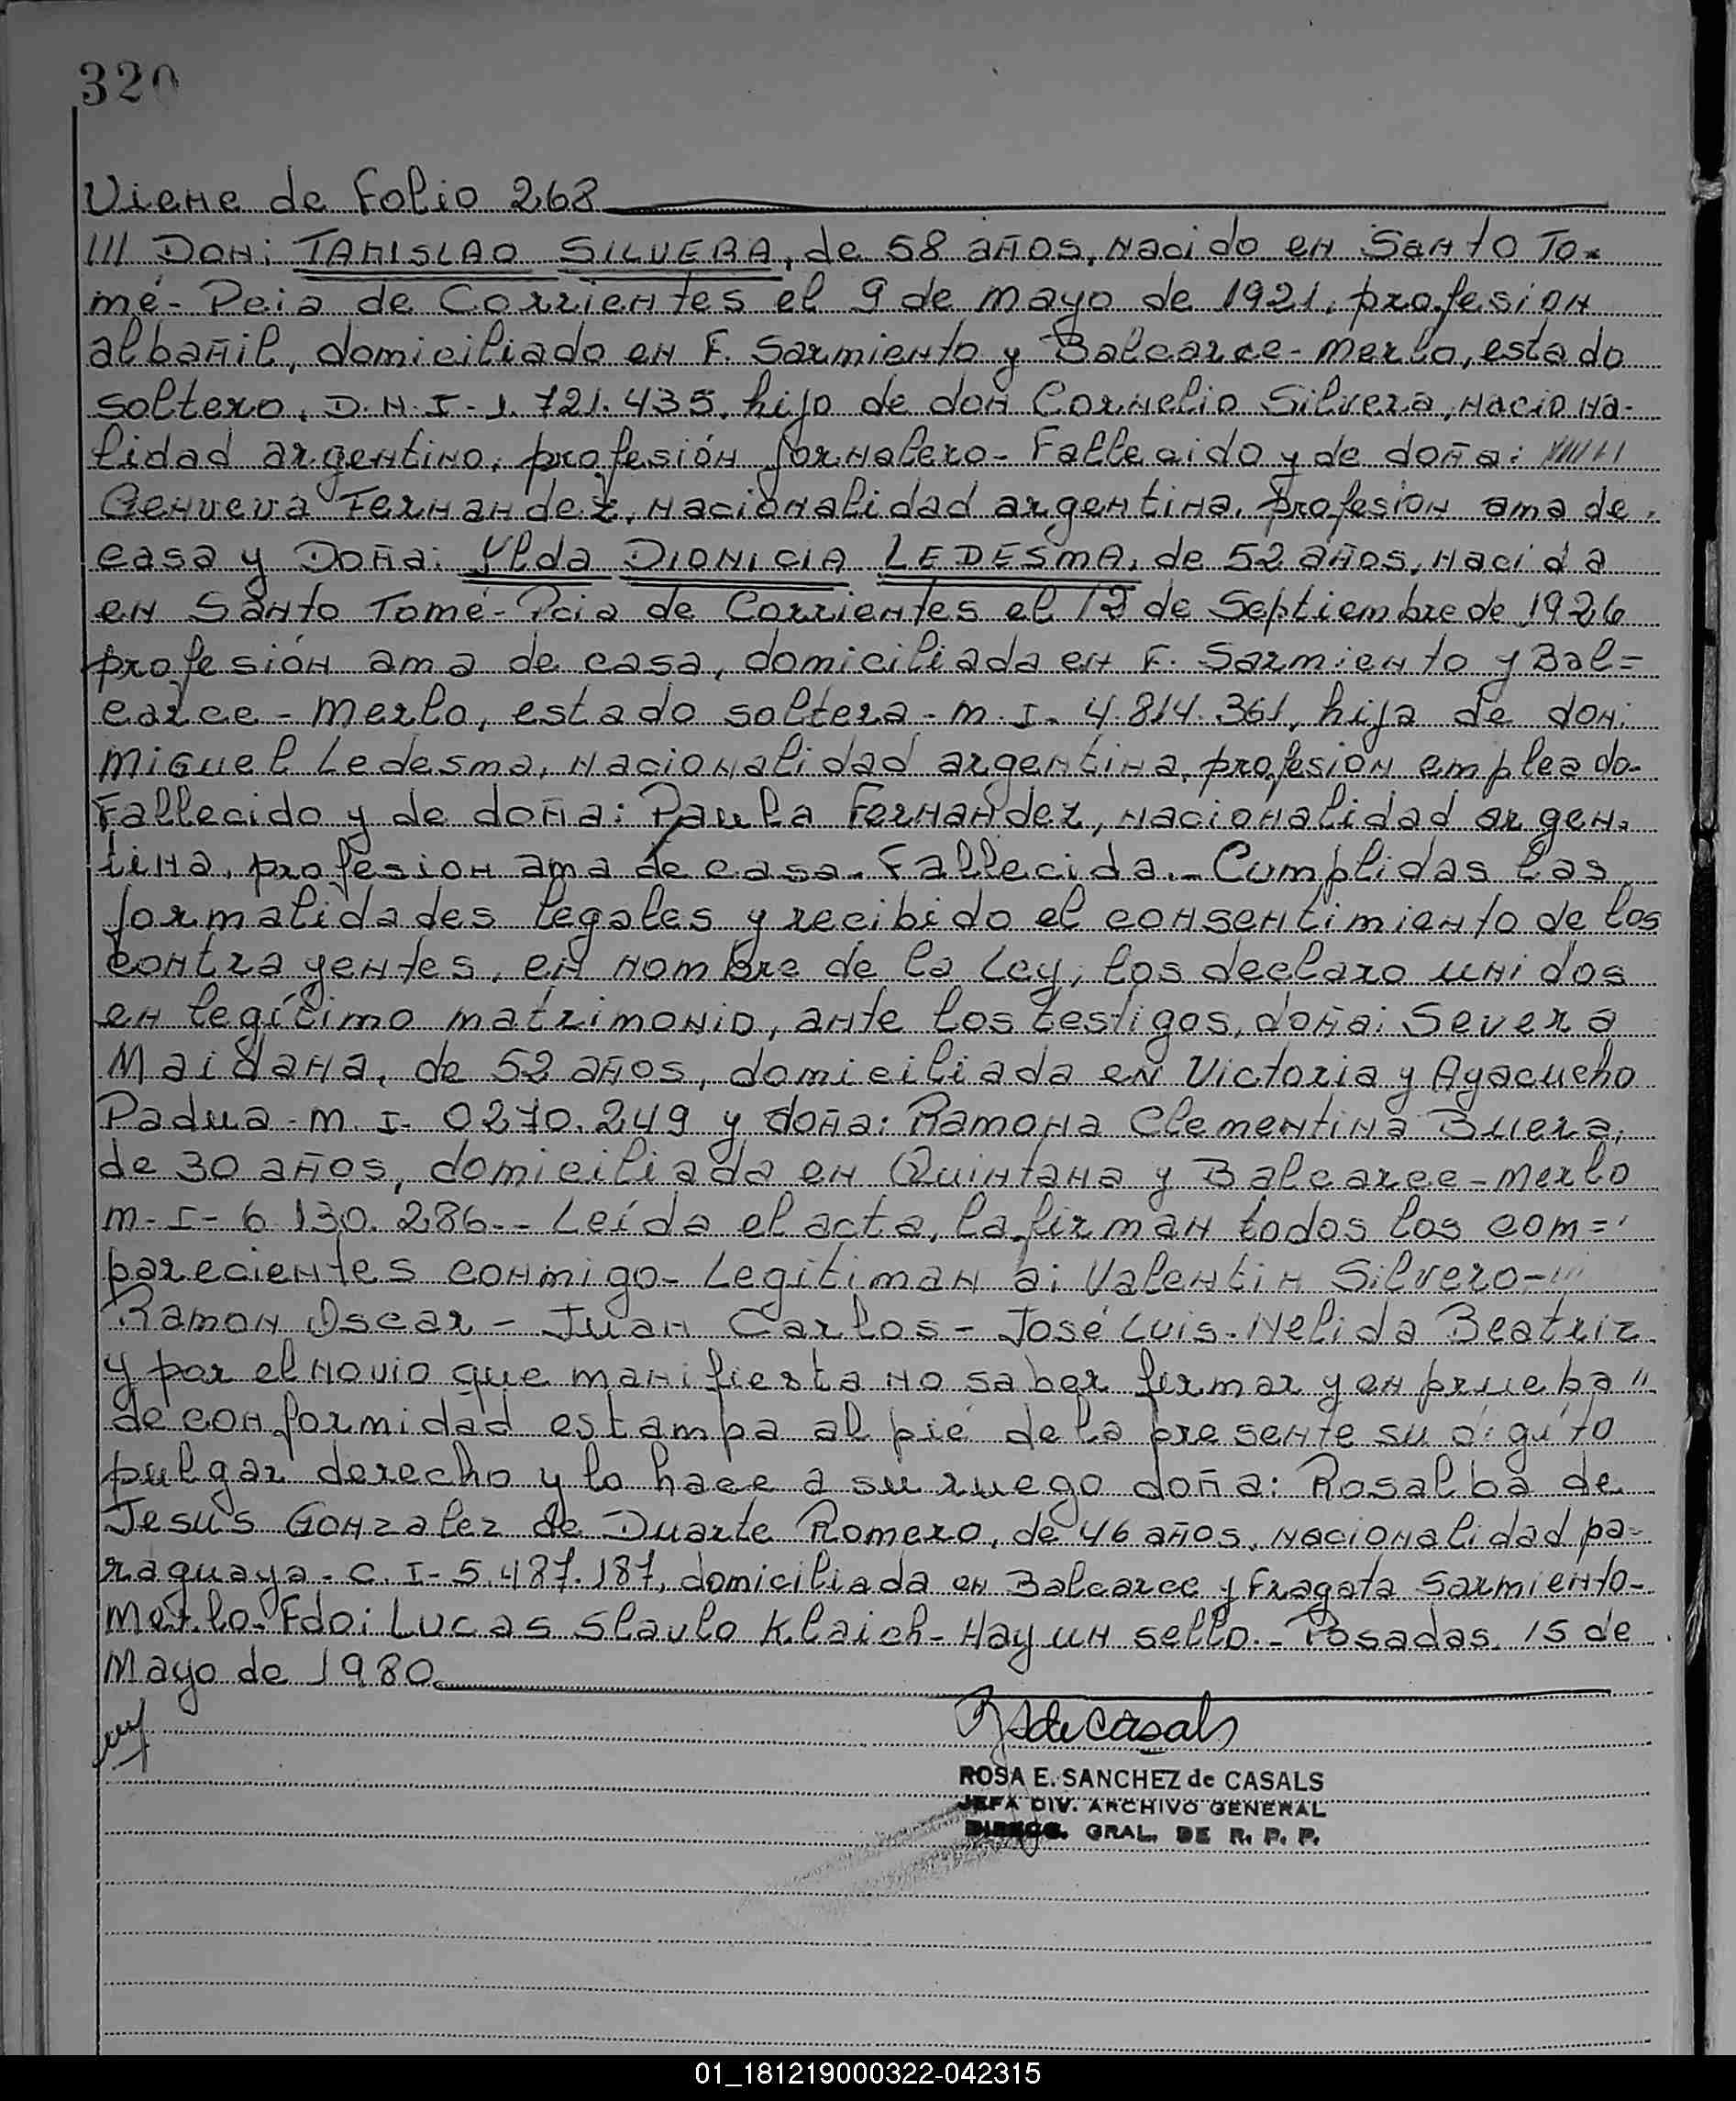 320
Viene de Folio 268
/// DON: TANISLAO SILVERA, de 58 años, nacido en Santo To-
mé- Pcia de Corrientes el 9 de mayo de 1921, profesion
albañil, domiciliado en F. Sarmiento y Balcarce - merlo, estado
soltero. D.N.I - 1.721.435, hijo de don Cornelio Silvera, naciona-
lidad argentino, profesión jornalero - Fallecido y de doña: //////
Genveva Fernandez, nacionalidad argentina, profesion ama de
casa y Doña: Ylda DIONICIA LEDESMA, de 52 años, nacida
en Santo Tomé - Pcia de Corrientes el 12 de Septiembre de 1926
profesión ama de casa, domiciliada en F. Sarmiento y Bal=
carce - merlo, estado soltera - m. I - 4.814.361, hija de don:
Miguel Ledesma, nacionalidad argentina, profesion empleado-
Fallecido y de doña: Paula Fernandez, nacionalidad argen-
tina, profesion ama de casa - Fallecida.- Cumplidas las
formalidades legales y recibido el consentimiento de los
contrayentes, en nombre de la Ley, los declaro unidos
en legítimo matrimonio, ante los testigos, doña: Severa
Maidana, de 52 años, domiciliada en Victoria y Ayacucho
Padua - m. I - 0270.249 y doña: Ramona Clementina Buera,
de 30 años, domiciliada en Quintana y Balcarce - merlo
m - I - 6.130.286 -- Leída el acta, la firman todos los com=
parecientes conmigo - Legítiman a: Valentin Silvero - ///
Ramon Oscar - Juan Carlos - José Luis - Nelida Beatriz
y por el novio que manifiesta no saber firmar y en prueba "
de conformidad estampa al pié de la presente su digito
pulgar derecho y lo hace a su ruego doña: Rosalba de
Jesus Gonzalez de Duarte Romero, de 46 años, nacionalidad pa-
raguaya - C. I - 5.487.187, domiciliada en Balcarce y Fragata Sarmiento-
Merlo - Fdo: Lucas Slavlo Klaich - Hay un sello.- Posadas, 15 de
Mayo de 1980.
R S de Casals
ROSA E. SANCHEZ de CASALS
JEFA DIV. ARCHIVO GENERAL
DIRECC. GRAL. DE R. P. P.
01_181219000322-042315